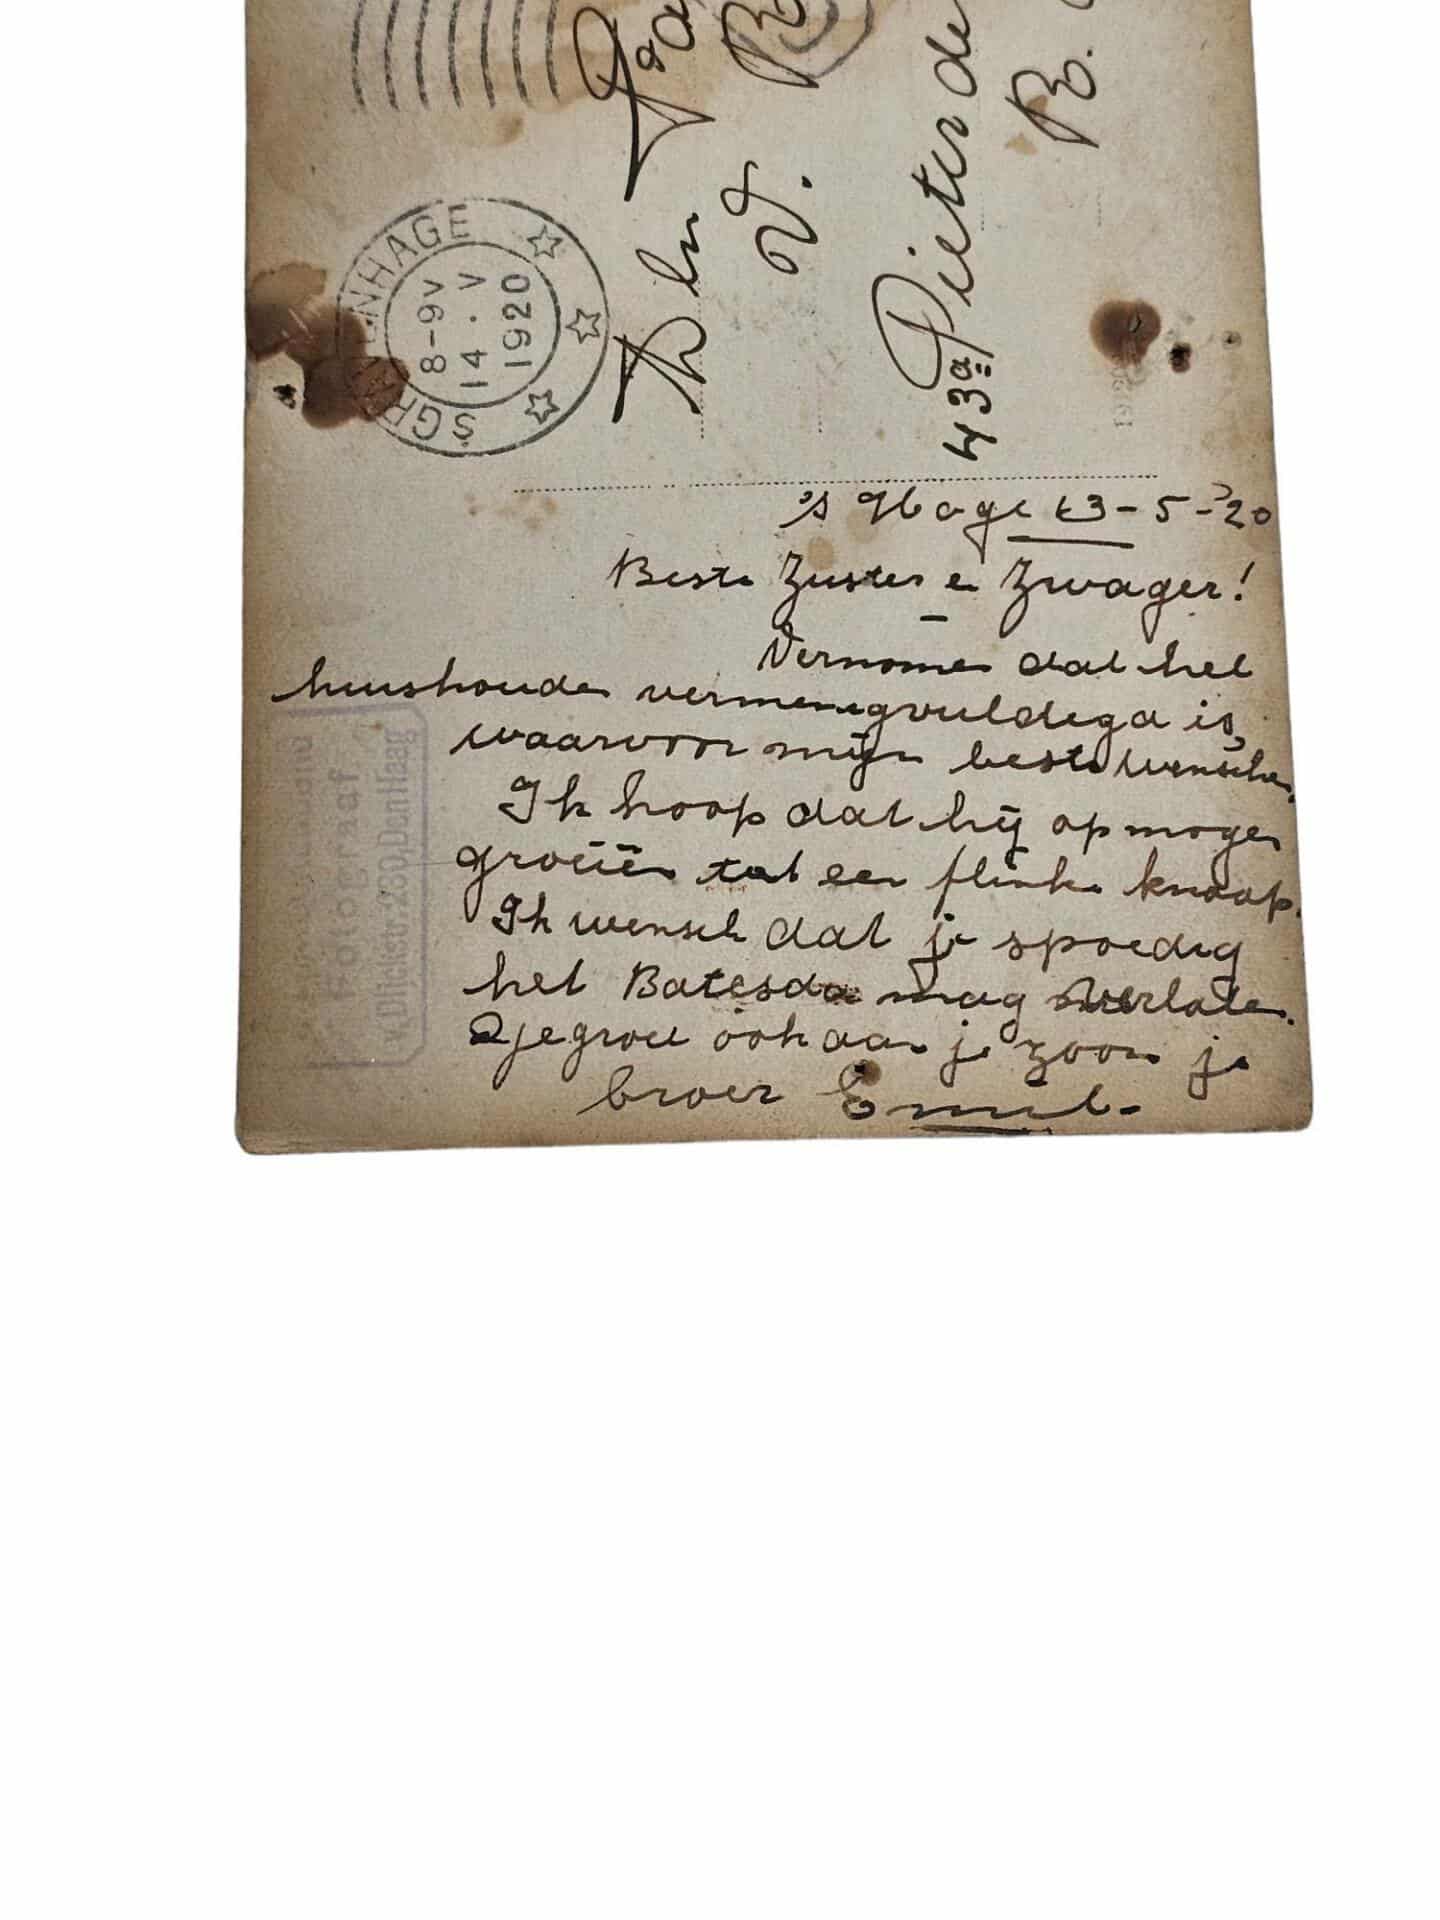 'SGR ENHAGE
8-9V
14.V
1920
W.
Pieter de
43a
B.
's Hage 13-5-'20
Beste Zuster en Zwager!
Vernomen dat het
huishouden vermenigvuldigd is,
waarvoor mijn beste wenschen.
Ik hoop dat hij op mogen
groeiën tot een flinke knaap.
Ik wensch dat je spoedig
het Batesda mag verlaten.
je groet ook aan je zoon je
broer Emil.
Fotograaf
v.Dijckstr.230,Den Haag